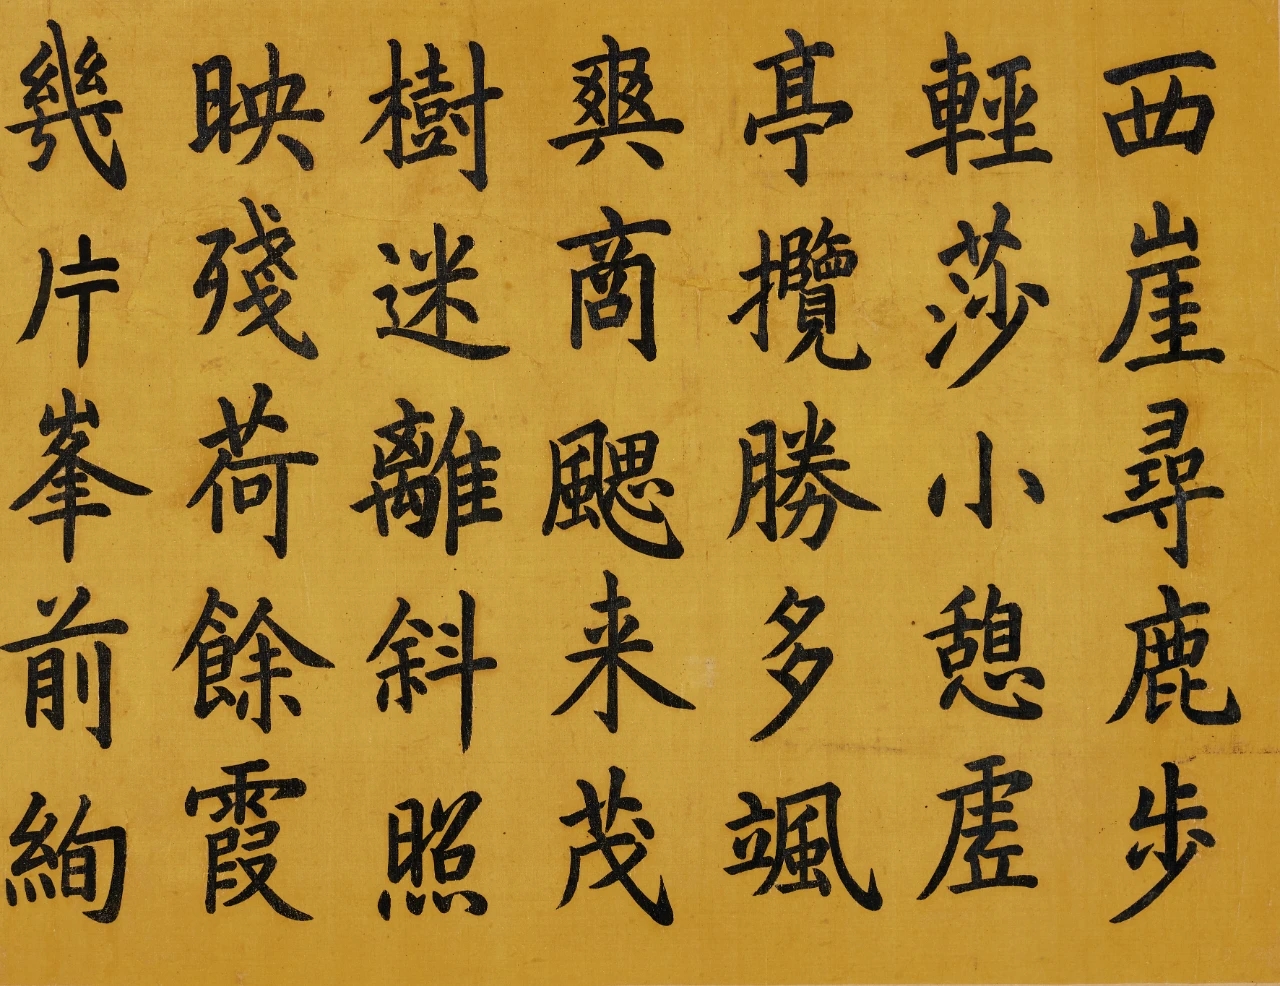 西崖尋鹿步
輕莎小憩虗
亭攬勝多颯
爽商颸来茂
樹迷離斜照
映殘荷餘霞
幾片峯前絢